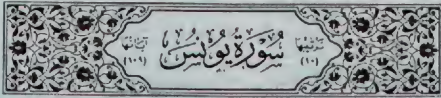 ترتيبها
(١٠)
سُورَةُ يُونُسَ
آياتها
(١٠٩)